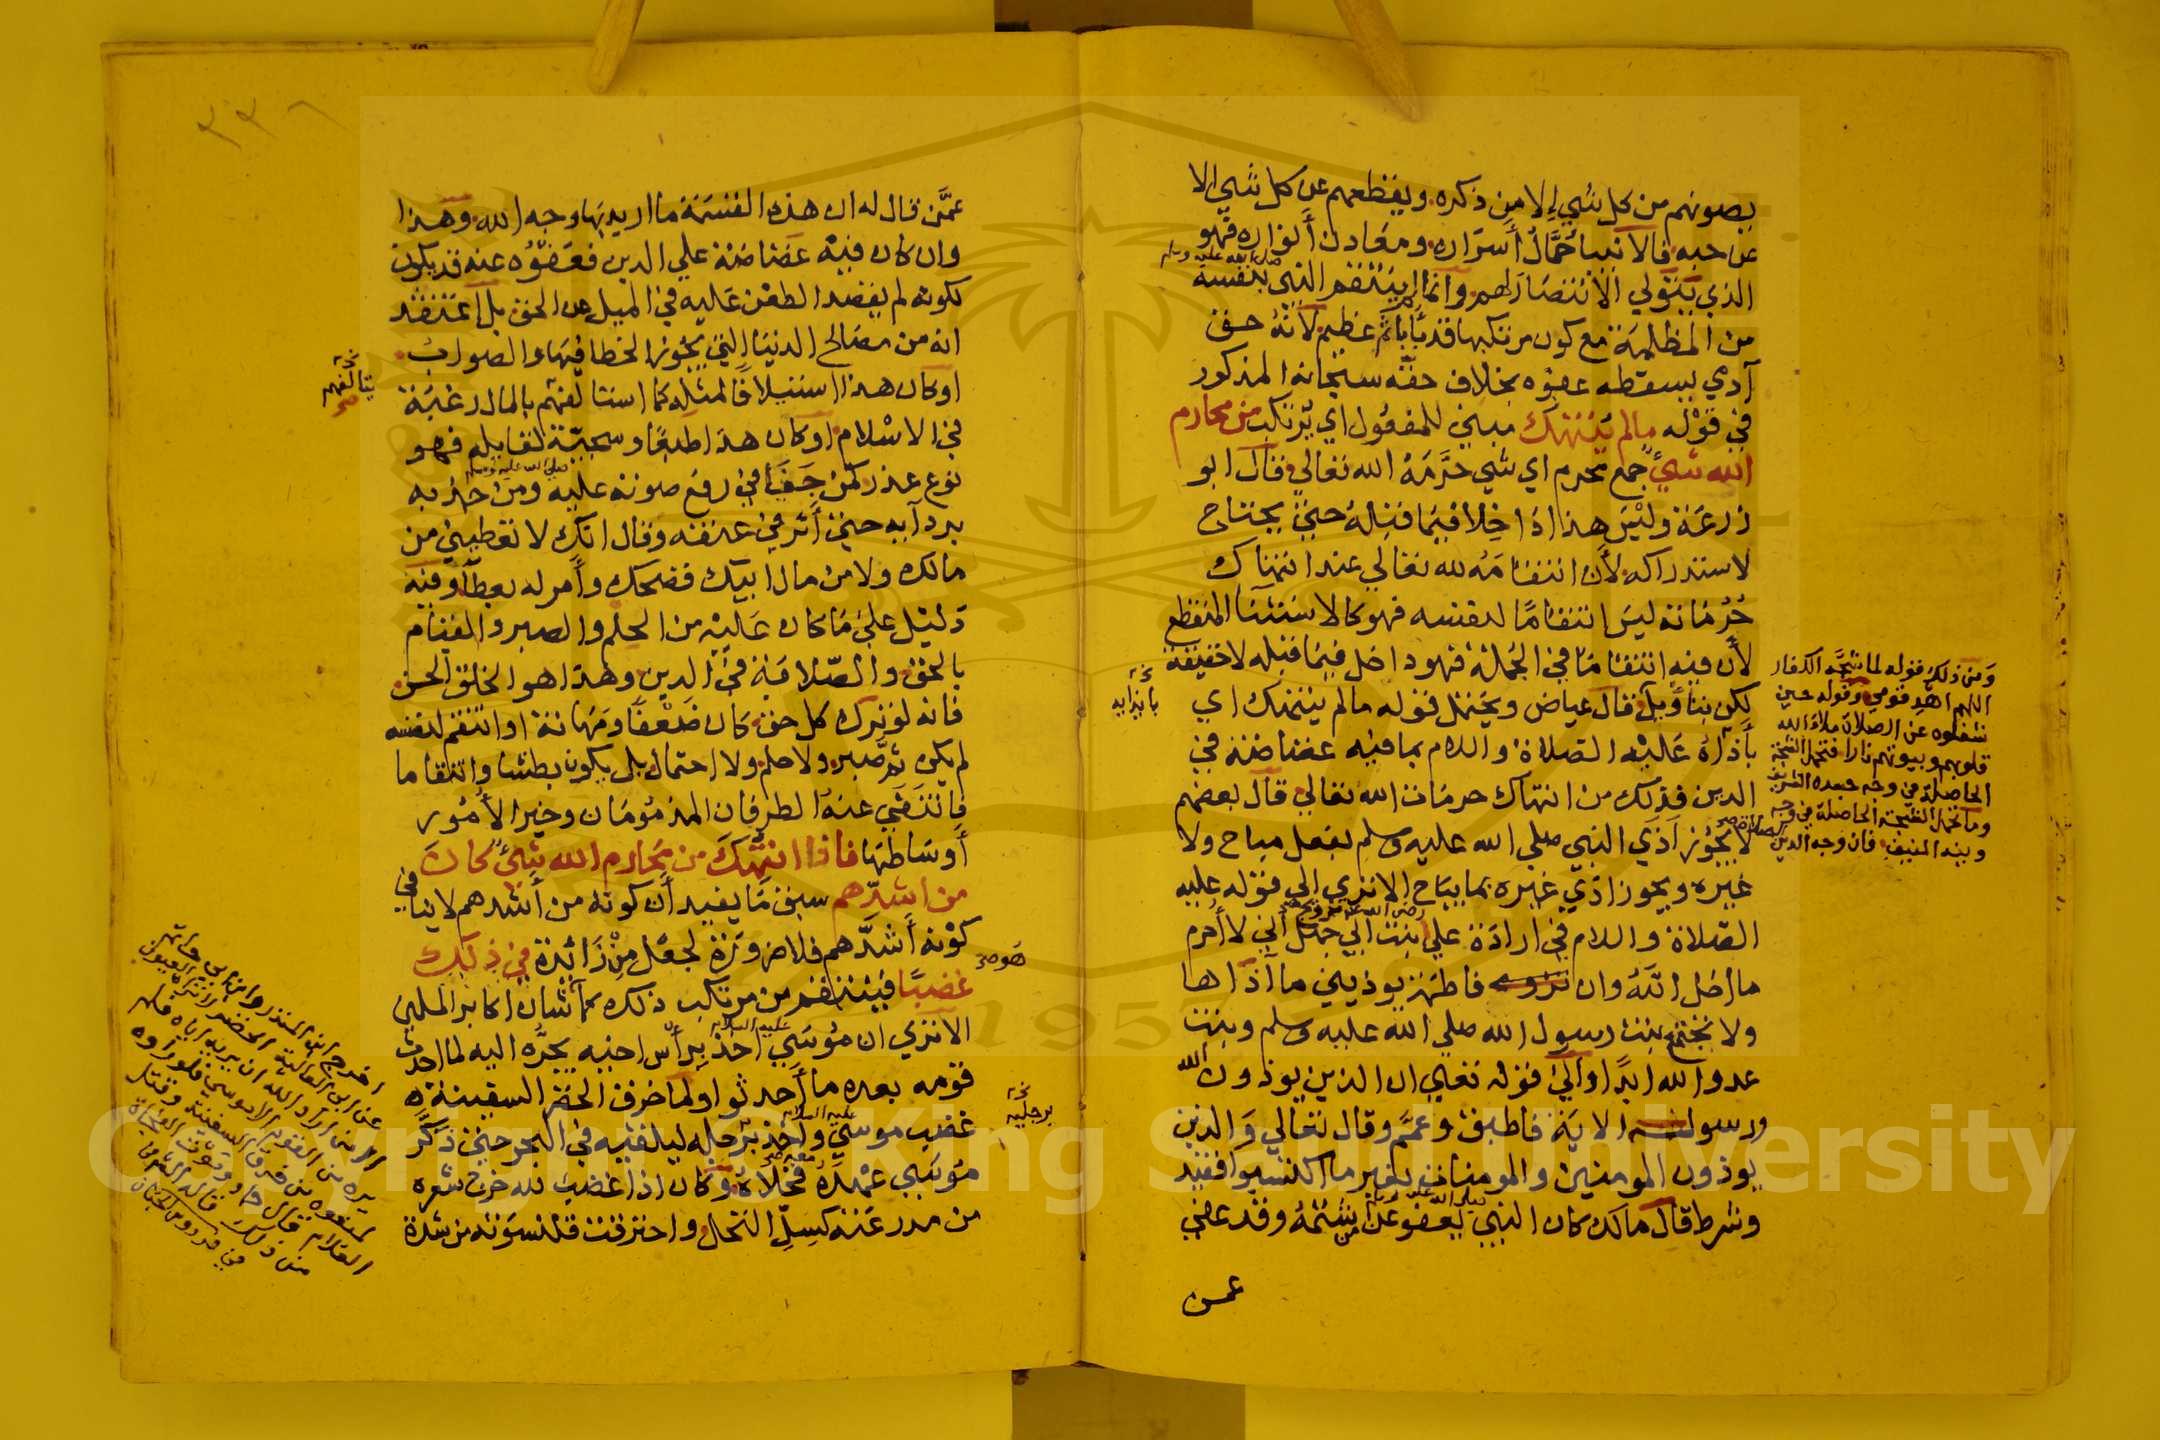 يصونهم من كل شيء إلا من ذكره ويقطعهم عن كل شيء الا
عن حبه فالانبيا حمّال أسراره ومعادن أنواره فهو
الذي يتولي الانتصار لهم وانما لم ينتقم النبي صلى الله عليه وسلم لنفسه
من المظلمة مع كون مرتكبها قد باء باثم عظيم لأنه حق
آدمي يسقطه عفوه بخلاف حقه سبحانه المذكور
في قوله مالم ينتهك مبني للمفعول اي يرتكب من محارم
الله شيء جمع محرم اي شي حرّمه الله تعالي قال ابو
زرعة وليس هذا داخلا فيما قبله حتي يحتاج
لاستدراكه لأن انتقامه لله تعالي عند انتهاك
حُرُماته ليس انتقامًا لنفسه فهو كالاستثنا المنقطع
لأن فيه انتقامًا في الجملة فهو داخل فيما قبله لا حقيقة
لكن بتأويل قال عياض ويحتمل قوله مالم ينتهك اي
بأذاه عليه الصلاة والسلام بما فيه غضاضة في
الدين فذلك من انتهاك حرمات الله تعالي قال بعضهم
لا يجوز اذي النبي صلي الله عليه وسلم بفعل مباح ولا
غيره ويجوز اذي غيره بما يباح الا تري الي قوله عليه
الصلاة والسلام في ارادة علي رضي الله عنه تزويج بنت ابي جهل أني لا أحرم
ما أحل الله وان فاطمة يوذيني ما آذاها
ولا تجتمع بنت رسول الله صلي الله عليه وسلم وبنت
عدو الله ابدًا وآلي قوله تعالي ان الذين يوذون الله
ورسوله الاية فاطبق وعمّم وقال تعالي وَالذين
يوذون المومنين والمومنات بغير ما اكتسبوا فقيد
وشرط قال مالك كان النبي صلى الله عليه وسلم يعفو عن من شتمه وقد عفي
عمن
بايذايه
ومن ذلك قوله لما شجّه الكفار
اللهم اهد قومي وقوله حين
شغلوه عن الصلاة ملأ الله
قلوبهم وبيوتهم نارا فتحمل الشجة
الحاصلة في وجه جسده الشريف
وما تحمل الشجة الحاصلة في وجه
دينه المنيف فان وجه الدين الصلاة صح
عمّن قال له ان هذه القسمة ما اريد بها وجه الله وهذا
وان كان فيه غضاضة علي الدين فعفوُه عنه قد يكون
لكونه لم يقصد الطعن عليه في الميل عن الحق بل اعتقد
انه من مصالح الدنيا التي يجوز الخطا فيها والصواب
او كان هذا استيلافا لمثله كما استالفهم بالمال رغبة
في الاسلام او كان هذا طبعًا وسجيّة لقايله فهو
نوع عذر كمن جَفَا في رفع صوته عليه صلى الله عليه وسلم ومن جذبه
بردايه حتي أثر في عنقه وقال انك لا تعطيني من
مالك ولا من مال ابيك فضحك وأمر له بعطا وفيه
دليل علي ما كان عليه من الحلم والصبر والقيام
بالحق والصّلابة في الدين وهذا هو الخلق الحسن
فانه لو ترك كل حق كان ضعفًا ومَهانة او انتقم لنفسه
لم يكن ثم صبر ولا حلم ولا احتمال بل يكون بطشا وانتقاما
فانتفي عنه الطرفان المذمومان وخير الأمور
أوساطها فاذا انتُهك من محارم الله شيء كان
من اشدّهم سبق ما يفيد أن كونه من أشدهم لا ينافي
كونه أشدّهم فلا ضرورة لجعل من زائدة في ذلك
غضبًا فينتقم من مرتكب ذلك كما شان اكابر الملين
الا تري ان موسي عليه السلام اخذ برأس اخيه يجره اليه لما احدث
قومه بعده ما أحدثوا ولما خرق الخضر السفينة
غضب موسي عليه السلام وأخذ برجله ليلقيه في البحر حتي ذكّر
موسي عهده فخلاه وكان اذا غضب لله خرج شعره
من مدرعته كسلّ النخل واحترقت قلنسوته من شدة
يتالفهم
هو صح
برجليه
اخرج ابن المنذر وابن ابي حاتم
عن ابي العالية الخضر لا تراه العيون
الا من اراد الله ان يريه اياه فلم
يره من القوم الا موسي فلو راوه
لمنعوه من خرق السفينة وقتل
الغلام